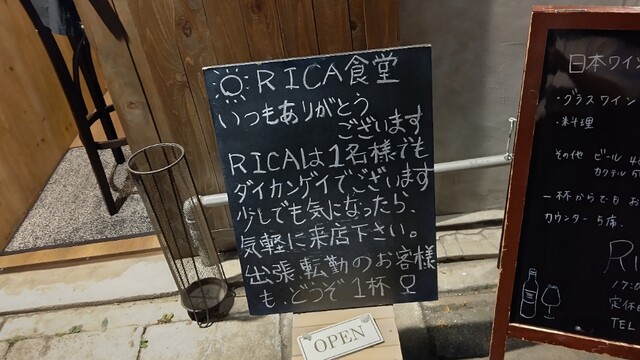 RICA食堂
いつもありがとう
ございます
RICAは1名様でも
ダイカンゲイでございます
少しでも気になったら、
気軽に来店下さい。
出張転勤のお客様
も、どうぞ1杯
OPEN
日本ワイン
・グラスワイン
・料理
その他 ビール
カクテル
一杯からでもお
カウンター5席
定休
TEL